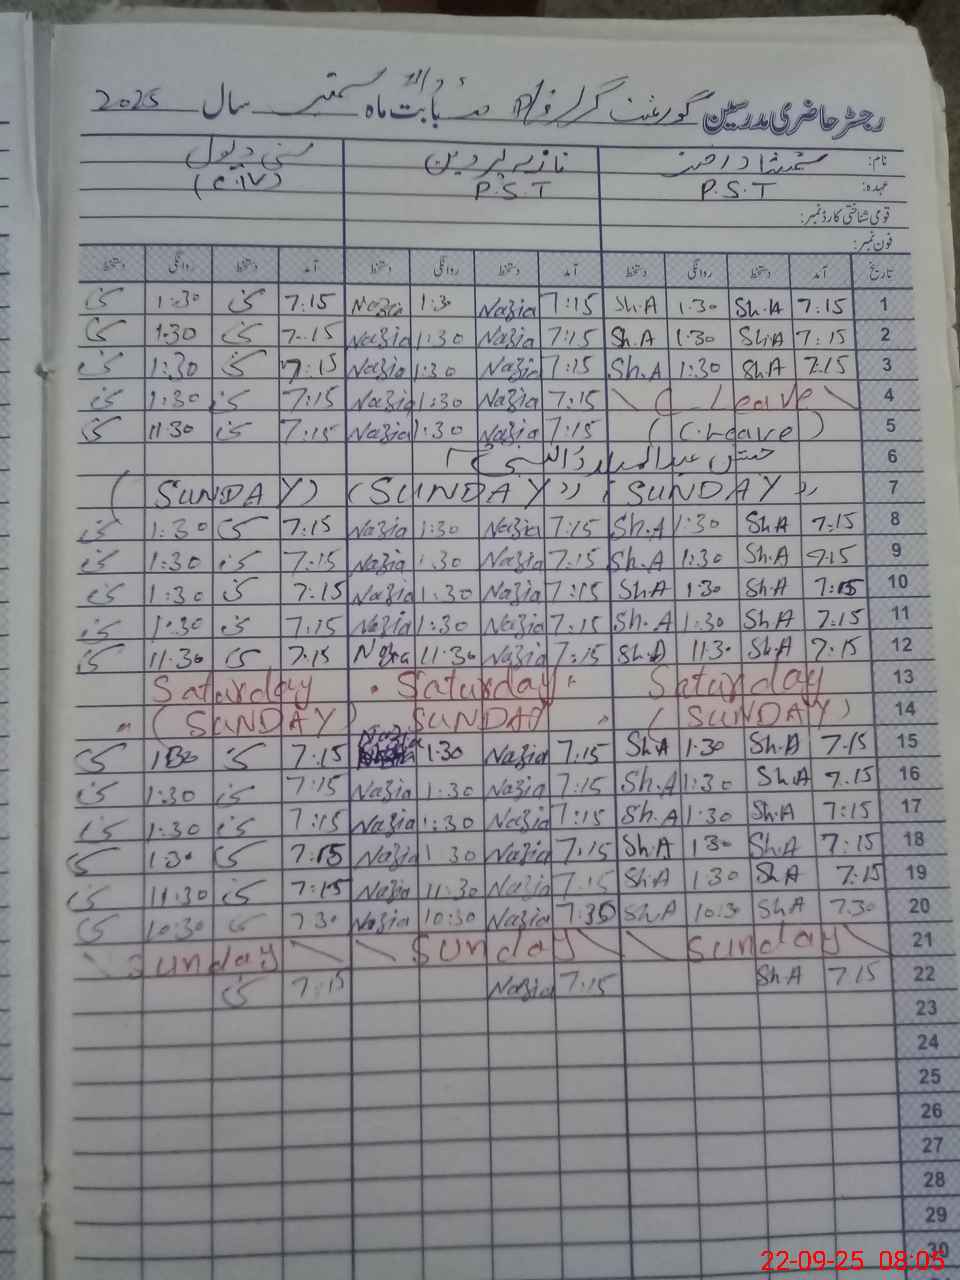 رجسٹر حاضری مدرسین گورنمنٹ گرلز بابت ماہ ستمبر سال 2025
نام: شمشاد اختر نازیہ پروین
عہدہ: P.S.T P.S.T
قومی شناختی کارڈ نمبر:
فون نمبر:
تاریخ آمد دستخط روانگی دستخط آمد دستخط روانگی دستخط آمد دستخط روانگی دستخط
1 7:15 Sh.A 1:30 Sh.A 7:15 Nazia 1:30 Nazia 7.15 1:30
2 7:15 Sh.A 1:30 Sh.A 7:15 Nazia 1:30 Nazia 7.15 1.30
3 7.15 Sh.A 1:30 Sh.A 7:15 Nazia 1:30 Nazia 7:15 1:30
4 C. Leave 7:15 Nazia 1:30 Nazia 7:15 1:30
5 (C. Leave) 7:15 Nazia 1:30 Nazia 7:15 11:30
6 جشن عید المیلاد النبی
7 (SUNDAY) (SUNDAY) (SUNDAY)
8 7:15 Sh.A 1:30 Sh.A 7:15 Nazia 1:30 Nazia 7:15 1:30
9 7:15 Sh.A 1:30 Sh.A 7:15 Nazia 1:30 Nazia 7:15 1:30
10 7:15 Sh.A 1:30 Sh.A 7:15 Nazia 1:30 Nazia 7:15 1:30
11 7:15 Sh.A 1:30 Sh.A 7:15 Nazia 1:30 Nazia 7:15 1:30
12 7:15 Sh.A 11:30 Sh.A 7:15 Nazia 11:30 Nazia 7.15 11:30
13 Saturday Saturday Saturday
14 (SUNDAY) SUNDAY (SUNDAY)
15 7.15 Sh.A 1:30 Sh.A 7.15 Nazia 1:30 Nazia 7:15 1:30
16 7.15 Sh.A 1:30 Sh.A 7:15 Nazia 1:30 Nazia 7:15 1:30
17 7:15 Sh.A 1:30 Sh.A 7:15 Nazia 1:30 Nazia 7:15 1:30
18 7:15 Sh.A 1:30 Sh.A 7.15 Nazia 1:30 Nazia 7:15 1:30
19 7:15 Sh.A 1:30 Sh.A 7.15 Nazia 11:30 Nazia 7:15 11:30
20 7.30 Sh.A 10:30 Sh.A 7:30 Nazia 10:30 Nazia 7:30 10:30
21 Sunday Sunday Sunday
22 7.15 Sh.A 7.15 Nazia 7:15
23
24
25
26
27
28
29
30
22-09-25 08:05